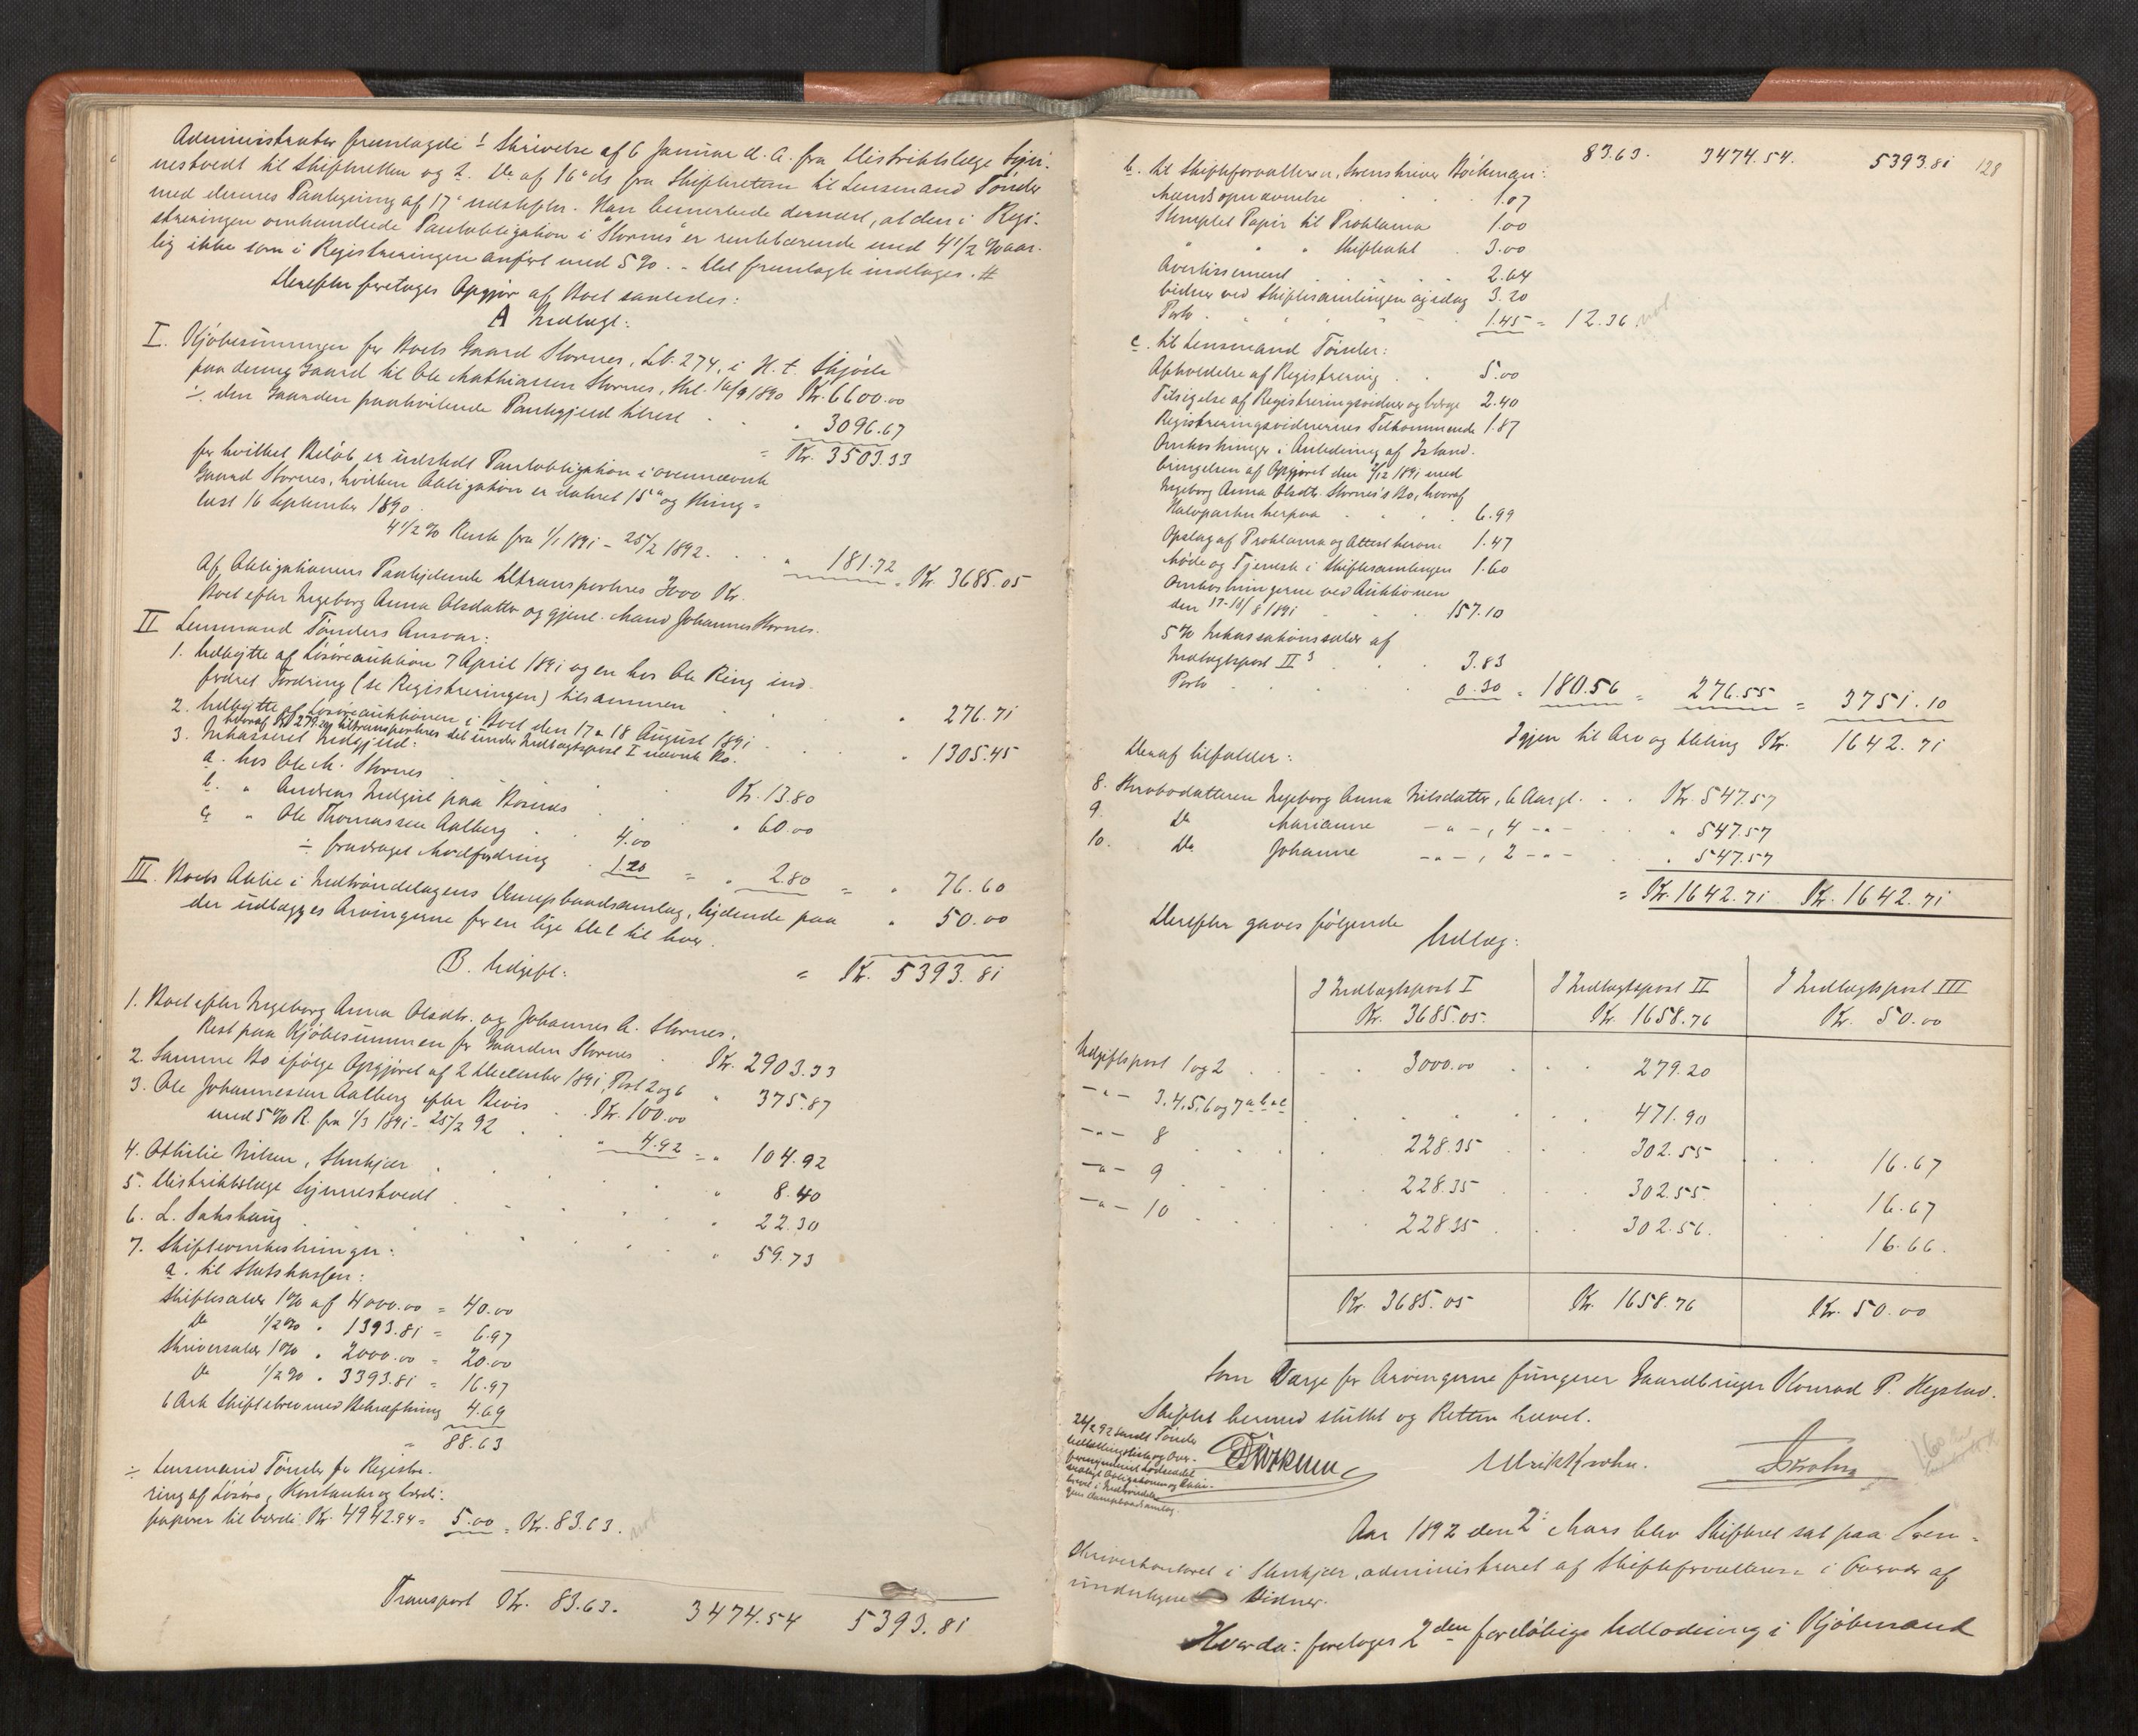 Administrator fremlagde 1 Skrivelse af 6 Januar d. A. fra Distriktslæge Lyn-
nestvedt til Skifteretten og 2. Do af 16 ds fra Skifteretten til Lensmand Tønder
med dennes Paategning af 17 næstefter. Han bemærkede dernæst, at den i Regi-
streringen omhandlede Pantobligation i Stornes er rentebærende med 4 1/2 % aar-
lig ikke som i Registreringen anført med 5%. - Det fremlagte indtages. #
Derefter foretoges Opgjør af Boet saaledes:
A Indtægt:
I. Kjøbesummen for Boets Gaard Stornes, Lb. 274, i H. t. Skjøde
paa denne Gaard til Ole Mathiassen Stornes, thl. 16/9 1890 Kr. 6600.00
÷ den Gaarden paahvilende Pantegjeld tilrest . . " 3096.67
= Kr. 3503.33
for hvilket Beløb er udstedt Pantobligation i ovennævnte
Gaard Stornes, hvilken Obligation er dateret 15de og thing-
læst 16 September 1890.
4 1/2 % Rente fra 1/1 1891 - 25/2 1892 . . " 181.72 = Kr. 3685.05
Af Obligationens Paalydende tiltransporteres 3000 Kr.
Boet efter Ingeborg Anna Olsdatter og gjenl. Mand Johannes Stornes.
II Lensmand Tønders Ansvar:
1. Udbytte af Løsøreauktion 7 April 1891 og en hos Ole Ring ind-
fordret Fordring (se Registreringen) tilsammen . . " 276.71
2. Udbytte af Løsøreauktionen i Boet den 17 & 18 August 1891 . . " 1305.45
hvoraf Kr 279.20 tiltransporteres det under Indtægtspost I nævnte Bo.
3. Inkasseret Indgjeld:
a. hos Ole M. Stornes . . Kr. 13.80
b. " Andreas Indgul paa Bosnes . . " 60.00
c. " Ole Thomassen Aalberg . 4.00
÷ fradraget Modfordring . 1.20 = " 2.80 = " 76.60
III. Boets Aktie i Indtrøndelagens Dampbaadsamlag, lydende paa " 50.00
der udlægges Arvingerne for en lige Del til hver.
= Kr. 5393.81
B. Udgift:
1. Boet efter Ingeborg Anna Olsdtr. og Johannes A. Stornes,
Rest paa Kjøbesummen for Gaarden Stornes . Kr. 2903.33
2. Samme Bo ifølge Opgjøret af 2 December 1891, Post 2 og 6 " 375.87
3. Ole Johannessen Aalberg efter Bevis . Kr. 100.00
med 5% R. fra 1/3 1891 - 25/2 92 . " 4.92 = " 104.92
4. Othilie Nilsen, Stenkjær . . " 8.40
5. Distriktslæge Lynnestvedt . . " 22.30
6. L. Sakshaug . . " 59.73
7. Skifteomkostninger:
a. til Statskassen:
Skiftesalær 1% af 4000.00 = 40.00
Do 1/2% " 1393.81 = 6.97
Skriversalær 1% " 2000.00 = 20.00
Do 1/2% " 3393.81 = 16.97
6 Ark Skiftebrev med Bekræftning 4.69
= 88.63
÷ Lensmand Tønder for Registre-
ring af Løsøre, Kontanter og Værdi-
papirer til Værdi Kr. 4942.94 = 5.00 = Kr. 83.63.
Transport Kr. 83.63. 3474.54 5393.81
83.63. 3474.54. 5393.81 128
b. til Skifteforvalteren, Sorenskriver Bøckman:
Mændsopnævnelse . . 1.07
Stemplet Papir til Proklama 1.00
" " " Skifteakt . 3.00
Avertissement . . 2.64
Vidner ved Skiftesamlingen og idag 3.20
Porto . . 1.45 = 12.36
c. til Lensmand Tønder:
Afholdelse af Registrering . . 5.00
Tilsigelse af Registreringsvidner og Værge 2.40
Registreringsvidnernes Tilkommende 1.87
Omkostninger i Anledning af Istand-
bringelsen af Opgjøret den 2/12 1891 med
Ingeborg Anna Olsdtr. Stornes's Bo, hvoraf
Halvparten herpaa . . 6.99
Opslag af Proklama og Attest herom 1.47
Møde og Tjeneste i Skiftesamlingen 1.60
Omkostningerne ved Auktionen
den 17-18/8 1891 . . 157.10
5% Inkassationssalær af
Indtægtspost II 3 . . 3.83
Porto . . 0.30 = 180.56 = 276.55 = 3751.10
Igjen til Arv og Deling Kr. 1642.71
Deraf tilfalder:
8. Broderdatteren Ingeborg Anna Nilsdatter, 6 Aar gl. . . Kr. 547.57
9. Do Marianne - " - , 4 - " - . " 547.57
10. Do Johanne - " - , 2 - " - . " 547.57
= Kr. 1642.71 Kr. 1642.71
Derefter gaves følgende
Udlæg:
I Indtægtspost I I Indtægtspost II I Indtægtspost III
Kr. 3685.05. Kr. 1658.76 Kr. 50.00
Udgiftspost 1 og 2 . . 3000.00 . . 279.20
- " - 3, 4, 5, 6 og 7 a b c . . 471.90
- " - 8 . . 228.35 . . 302.55 . . 16.67
- " - 9 . . 228.35 . . 302.55 . . 16.67
- " - 10 . . 228.35 . . 302.56. . . 16.66.
Kr. 3685.05 Kr. 1658.76 Kr. 50.00
Som Værge for Arvingerne fungerer Gaardbruger Konrad P. Hegstad.
Skiftet hermed sluttet og Retten hævet.
26/2 92 sendt Tønder
Bøckman Ulrik Krohn. Krohn
Aar 1892 den 2: Mars blev Skifteret sat paa Soren-
skriverkontoret i Stenkjær, administreret af Skifteforvalteren i Overvær af
undertegnede Vidner.
Hvorda: foretoges 2den foreløbige Udlodning i Kjøbmand